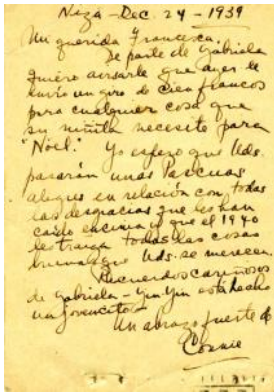 Niza - Dec. 24 - 1939
Mi querida Francesca.
De parte de Gabriela
quiero avisarle que ayer le
envío un giro de cien francos
para cualquier cosa que
su niñita necesite para
"Noel." Yo espero que Uds.
pasarán unas Pascuas
alegres en relación con todas
las desgracias que les han
caído encima y que el 1940
les traiga todas las cosas
buenas que Uds. se merecen.
Recuerdos cariñosos
de Gabriela - Yin Yin está hecho
un jovencito -
Un abrazo fuerte de
Connie